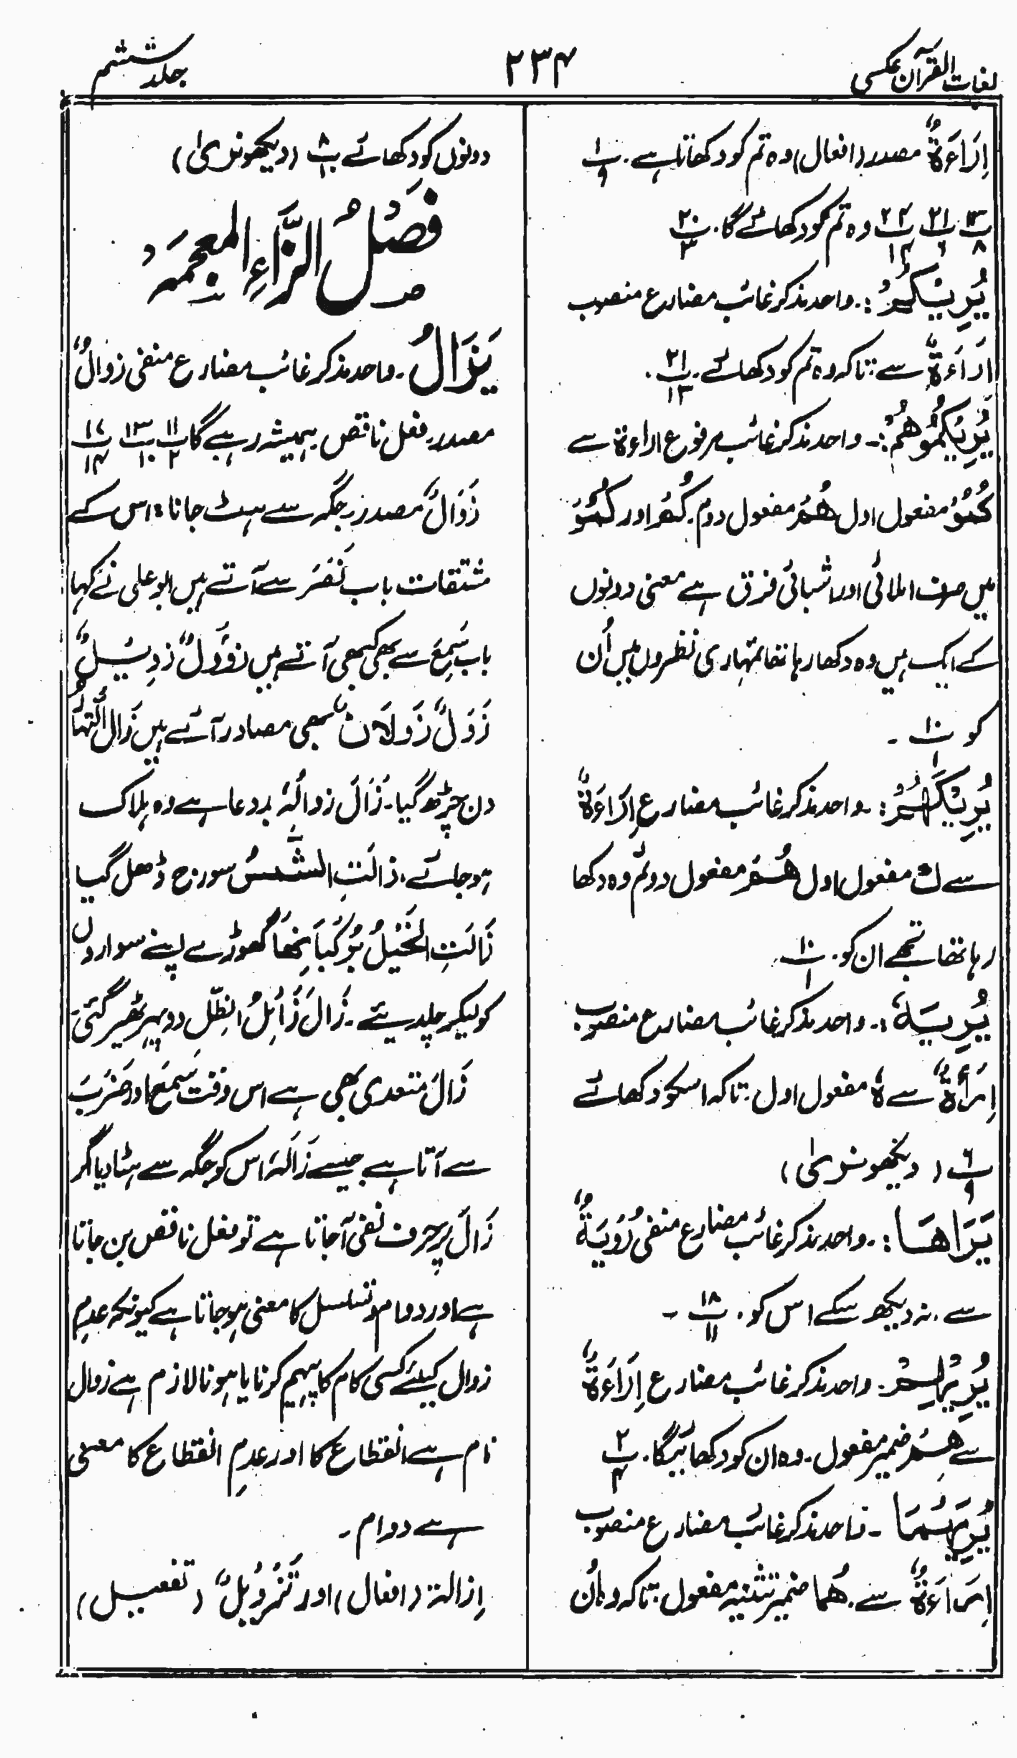 لغات القرآن عکسی
۲۳۴
جلد ششم
اِرَاءَةٌ مصدر (افعال) وہ تم کو دکھاتا ہے۔ پ ۱ / ۹
پ ۱۳ / ۸ پ ۲۱ / ۶ پ ۲۴ / ۱۴ وہ تم کو دکھائے گا۔ پ ۲۰ / ۳
یُرِیَکُمْ :۔ واحد مذکر غائب مضارع منصوب
اِرَاءَةٌ سے : تاکہ وہ تم کو دکھائے۔ پ ۲۱ / ۱۳ ۔
یُرِیْکُمُوْهُمْ :۔ واحد مذکر غائب مرفوع اراءۃ سے
کُمُوْ مفعول اول هُمْ مفعول دوم۔ کُمْ اور کُمُوْ
میں صرف املائی اور اشباعی فرق ہے معنی دونوں
کے ایک ہیں وہ دکھا رہا تھا تمہاری نظروں میں اُن
کو پ ۱۰ / ۱ ۔
یُرِیْکَهُمْ :۔ واحد مذکر غائب مضارع اِرَاءَةٌ
سے ك مفعول اول هُمْ مفعول دوم وہ دکھا
رہا تھا تجھے ان کو۔ پ ۱۰ / ۱
یُرِیَهٗ :۔ واحد مذکر غائب مضارع منصوب
اِرَاءَةٌ سے هٗ مفعول اول۔ تاکہ اسکو دکھائے
پ ۶ / ۹ (دیکھو نریٰ)
یَرَاهَا :۔ واحد مذکر غائب مضارع منفی رُوْیَةٌ
سے۔ نہ دیکھ سکے اس کو۔ پ ۱۸ / ۱۱ ۔
یُرِیْهِمْ :۔ واحد مذکر غائب مضارع اِرَاءَةٌ
سے هِمْ ضمیر مفعول۔ وہ ان کو دکھائیگا۔ پ ۲ / ۴
یُرِیَهُمَا ۔ واحد مذکر غائب مضارع منصوب
اِرَاءَةٌ سے۔ هُمَا ضمیر تثنیہ مفعول۔ تاکہ وہ اُن
دونوں کو دکھائے پ ۸ / ۱۰ (دیکھو نریٰ)
فصلُ الزّاءِ المعجمہ
یَزَالُ ۔ واحد مذکر غائب مضارع منفی زوالٌ
مصدر۔ فعل ناقص ہمیشہ رہے گا پ ۱۱ / ۲ پ ۱۳ / ۱۰ پ ۱۷ / ۱۴
زَوَالٌ مصدر۔ جگہ سے ہٹ جانا، اس کے
مشتقات باب نَصَرَ سے آتے ہیں ابو علی نے کہا
باب سَمِعَ سے بھی کبھی آتے ہیں زؤُولٌ زوِیْلٌ
زَوَلٌ زَوَلَانٌ بھی مصادر آئے ہیں زَالَ النَّهَارُ
دن چڑھ گیا۔ زَالَ زوالُهٗ بددعا ہے وہ ہلاک
ہو جائے، زالَتِ الشَّمْسُ سورج ڈھل گیا
زَالَتِ الْخَیْلُ بِرُکْبَانِهَا گھوڑے اپنے سواروں
کو لیکر چلدیئے۔ زَالَ زَائِلُ الظِّلِّ دوپہر ٹھیر گئی۔
زَالَ متعدی بھی ہے اس وقت سَمِعَ اور ضَرَبَ
سے آتا ہے جیسے زَالَهٗ اس کو جگہ سے ہٹا دیا اگر
زَالَ پر حرف نفی آ جاتا ہے تو فعل ناقص بن جاتا
ہے اور دوام و تسلسل کا معنی ہو جاتا ہے کیونکہ عدم
زوال کیلئے کسی کام کا پیہم کرنا یا ہونا لازم ہے زوال
نام ہے انقطاع کا اور عدمِ انقطاع کا معنی
ہے دوام ۔
اِزالۃ (افعال) اور تَزْوِیلٌ (تفعیل)